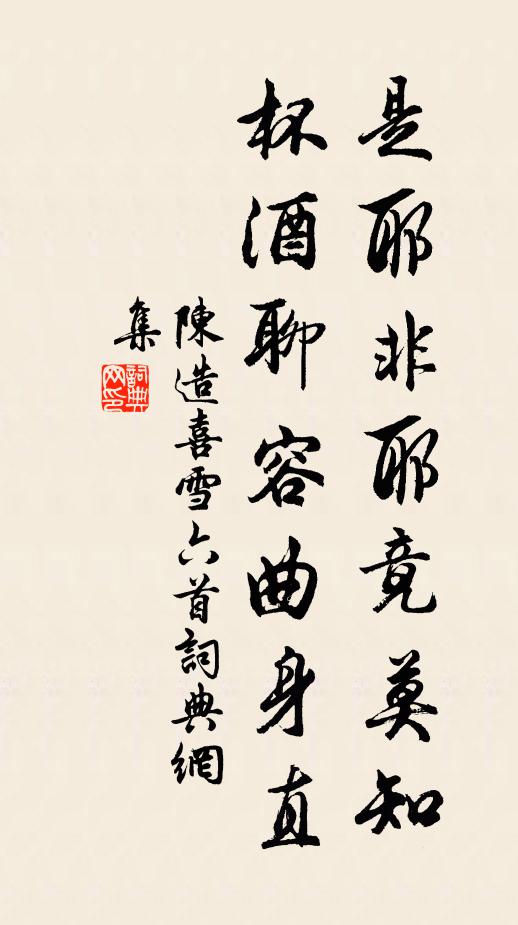 是耶非耶竟莫知
杯酒聊容曲身直
陳造喜雪六首詞典網
集
詞典
网印